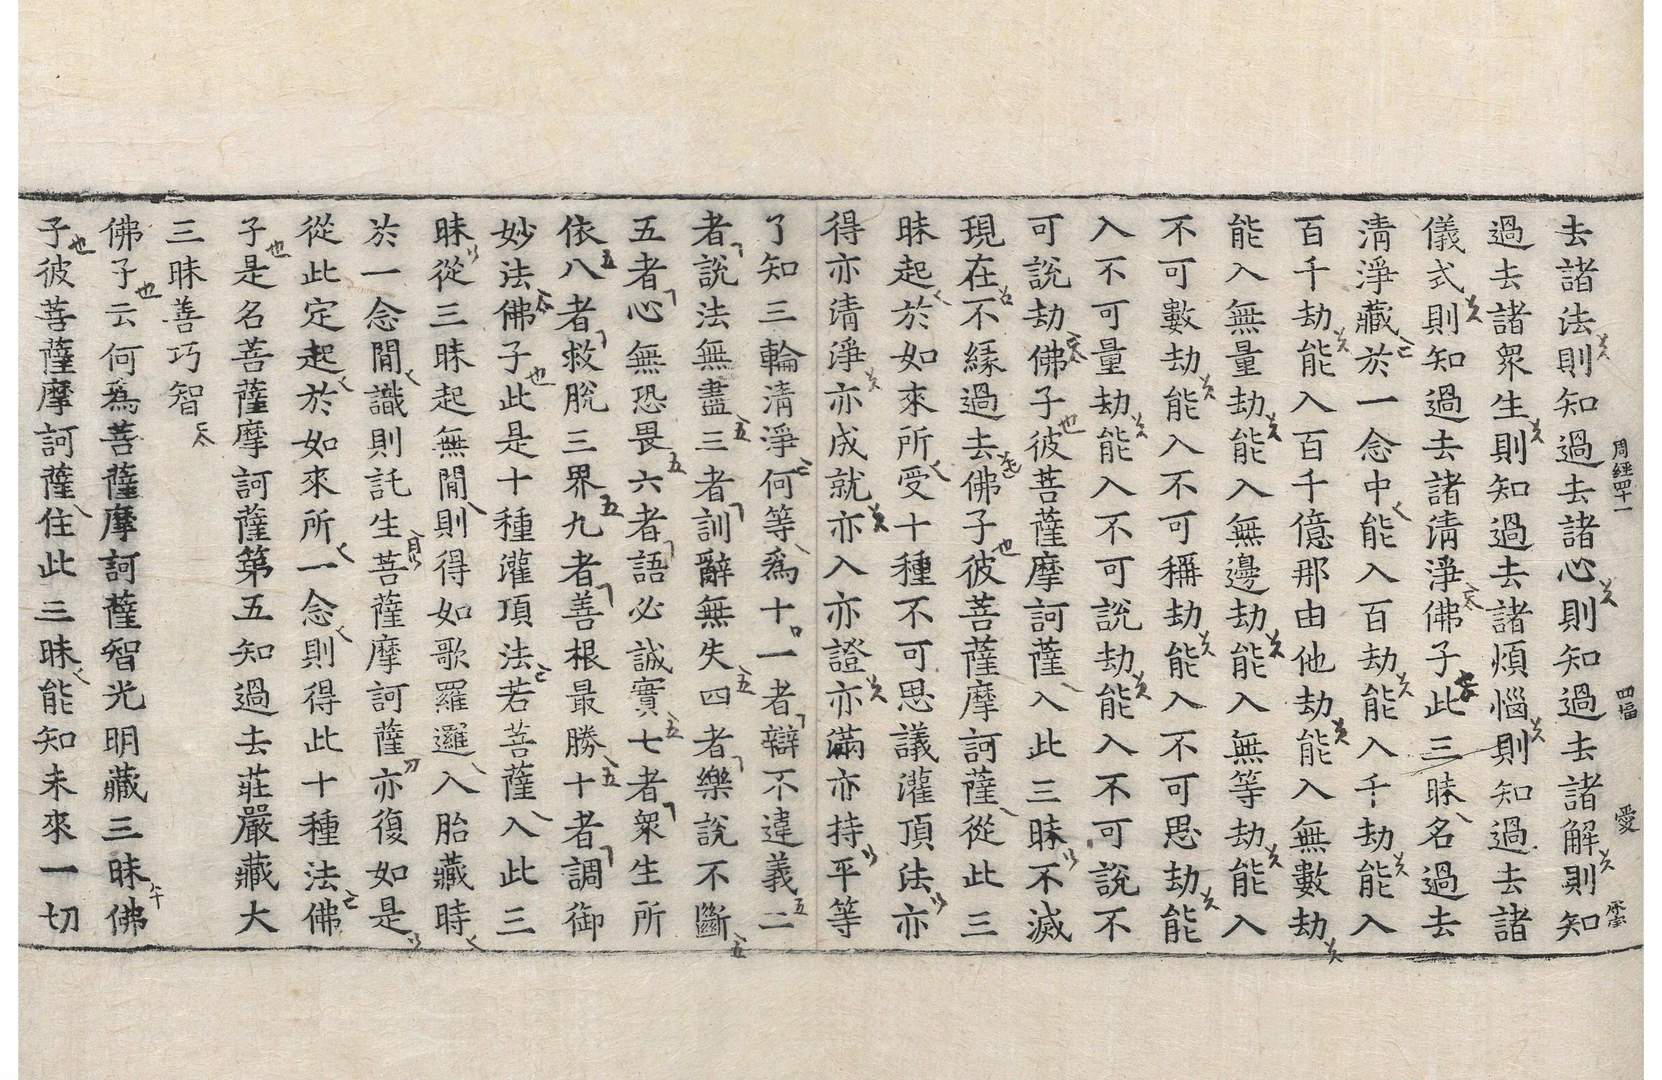 周經四十一 四幅 愛
去諸法則知過去諸心則知過去諸解則知
過去諸衆生則知過去諸煩惱則知過去諸
儀式則知過去諸清淨佛子此三昧名過去
清淨藏於一念中能入百劫能入千劫能入
百千劫能入百千億那由他劫能入無數劫
能入無量劫能入無邊劫能入無等劫能入
不可數劫能入不可稱劫能入不可思劫能
入不可量劫能入不可說劫能入不可說不
可說劫佛子彼菩薩摩訶薩入此三昧不滅
現在不緣過去佛子彼菩薩摩訶薩從此三
昧起於如來所受十種不可思議灌頂法亦
得亦清淨亦成就亦入亦證亦滿亦持平等
了知三輪清淨何等為十一者辯不違義二
者說法無盡三者訓辭無失四者樂說不斷
五者心無恐畏六者語必誠實七者衆生所
依八者救脫三界九者善根最勝十者調御
妙法佛子此是十種灌頂法若菩薩入此三
昧從三昧起無閒則得如歌羅邏入胎藏時
於一念閒識則託生菩薩摩訶薩亦復如是
從此定起於如來所一念則得此十種法佛
子是名菩薩摩訶薩第五知過去莊嚴藏大
三昧善巧智
佛子云何爲菩薩摩訶薩智光明藏三昧佛
子彼菩薩摩訶薩住此三昧能知未來一切